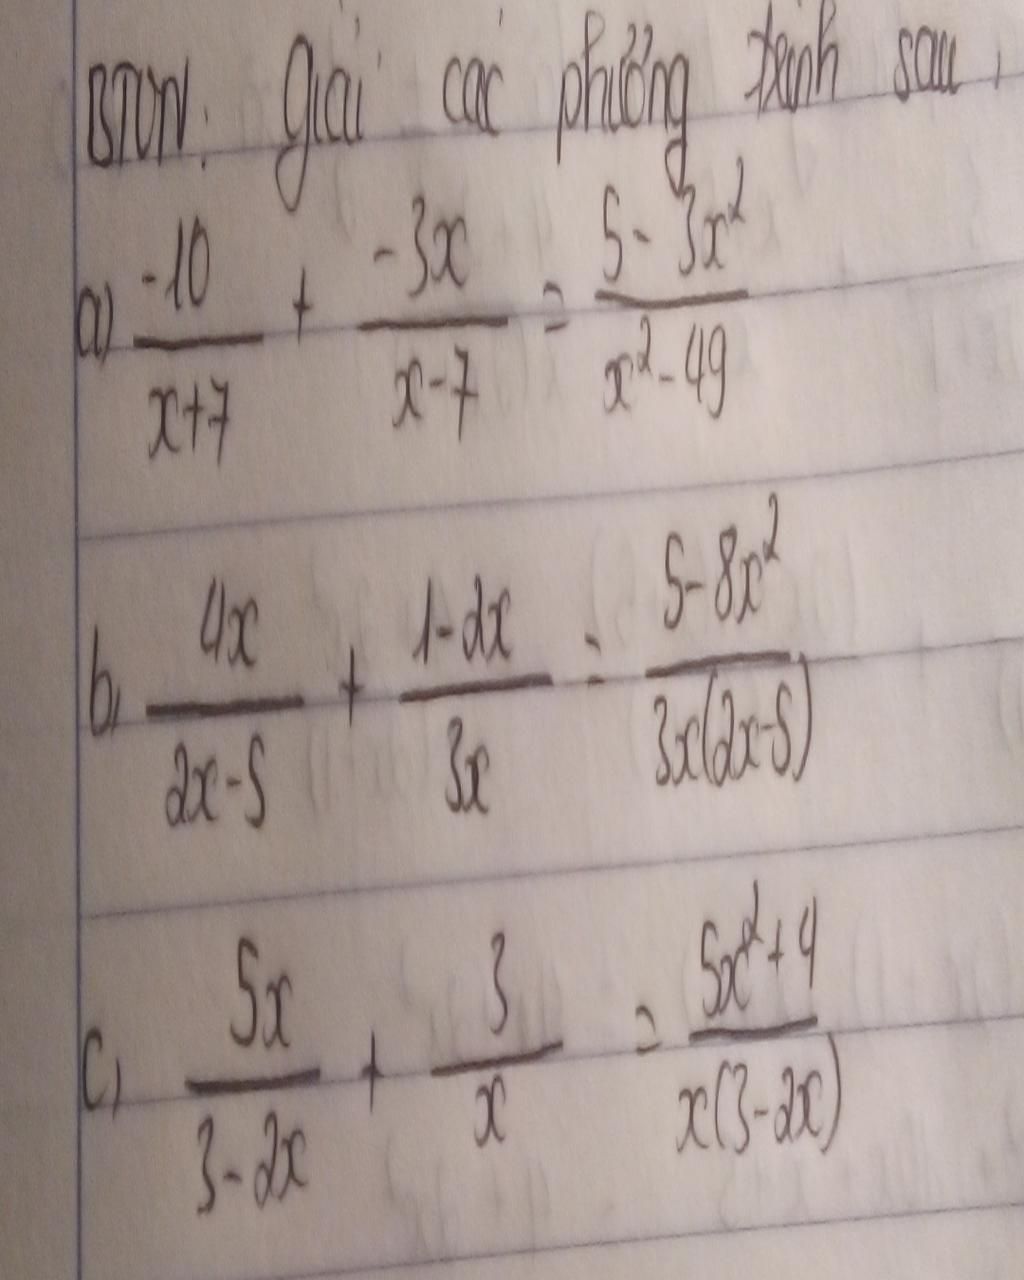 BTVN: giải các phương trình sau.
a) \frac{-10}{x+7} + \frac{-3x}{x-7} = \frac{5-3x^2}{x^2-49}
b, \frac{4x}{2x-5} + \frac{1-2x}{3x} = \frac{5-8x^2}{3x(2x-5)}
c, \frac{5x}{3-2x} + \frac{3}{x} = \frac{5x^2+4}{x(3-2x)}